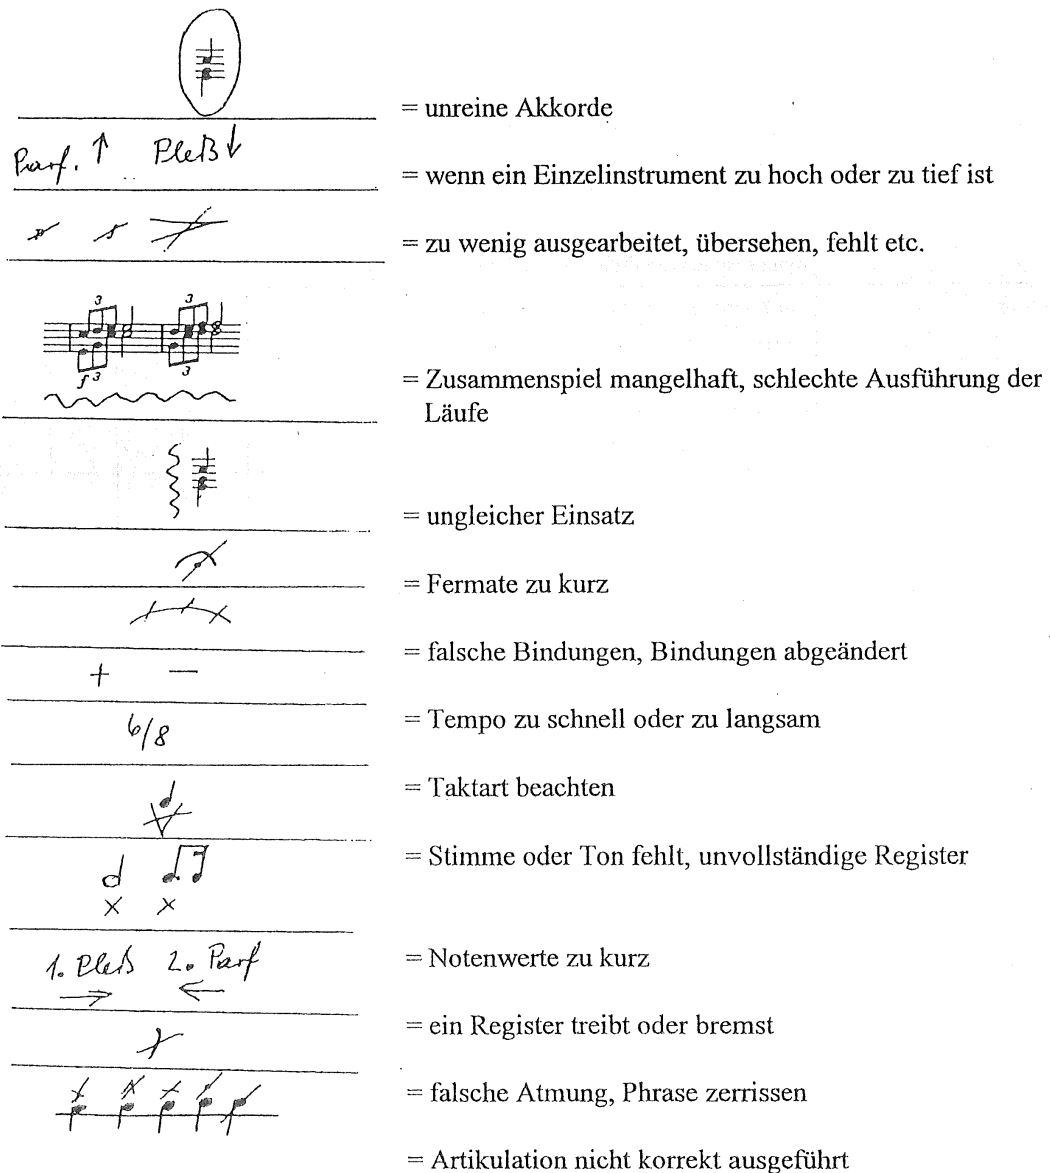 = unreine Akkorde
Parf. ↑ Pleß ↓
= wenn ein Einzelinstrument zu hoch oder zu tief ist
= zu wenig ausgearbeitet, übersehen, fehlt etc.
3 3
f 3 3
= Zusammenspiel mangelhaft, schlechte Ausführung der
Läufe
= ungleicher Einsatz
= Fermate zu kurz
= falsche Bindungen, Bindungen abgeändert
+ –
= Tempo zu schnell oder zu langsam
6/8
= Taktart beachten
= Stimme oder Ton fehlt, unvollständige Register
= Notenwerte zu kurz
1. Pleß 2. Parf
→ ←
= ein Register treibt oder bremst
= falsche Atmung, Phrase zerrissen
= Artikulation nicht korrekt ausgeführt